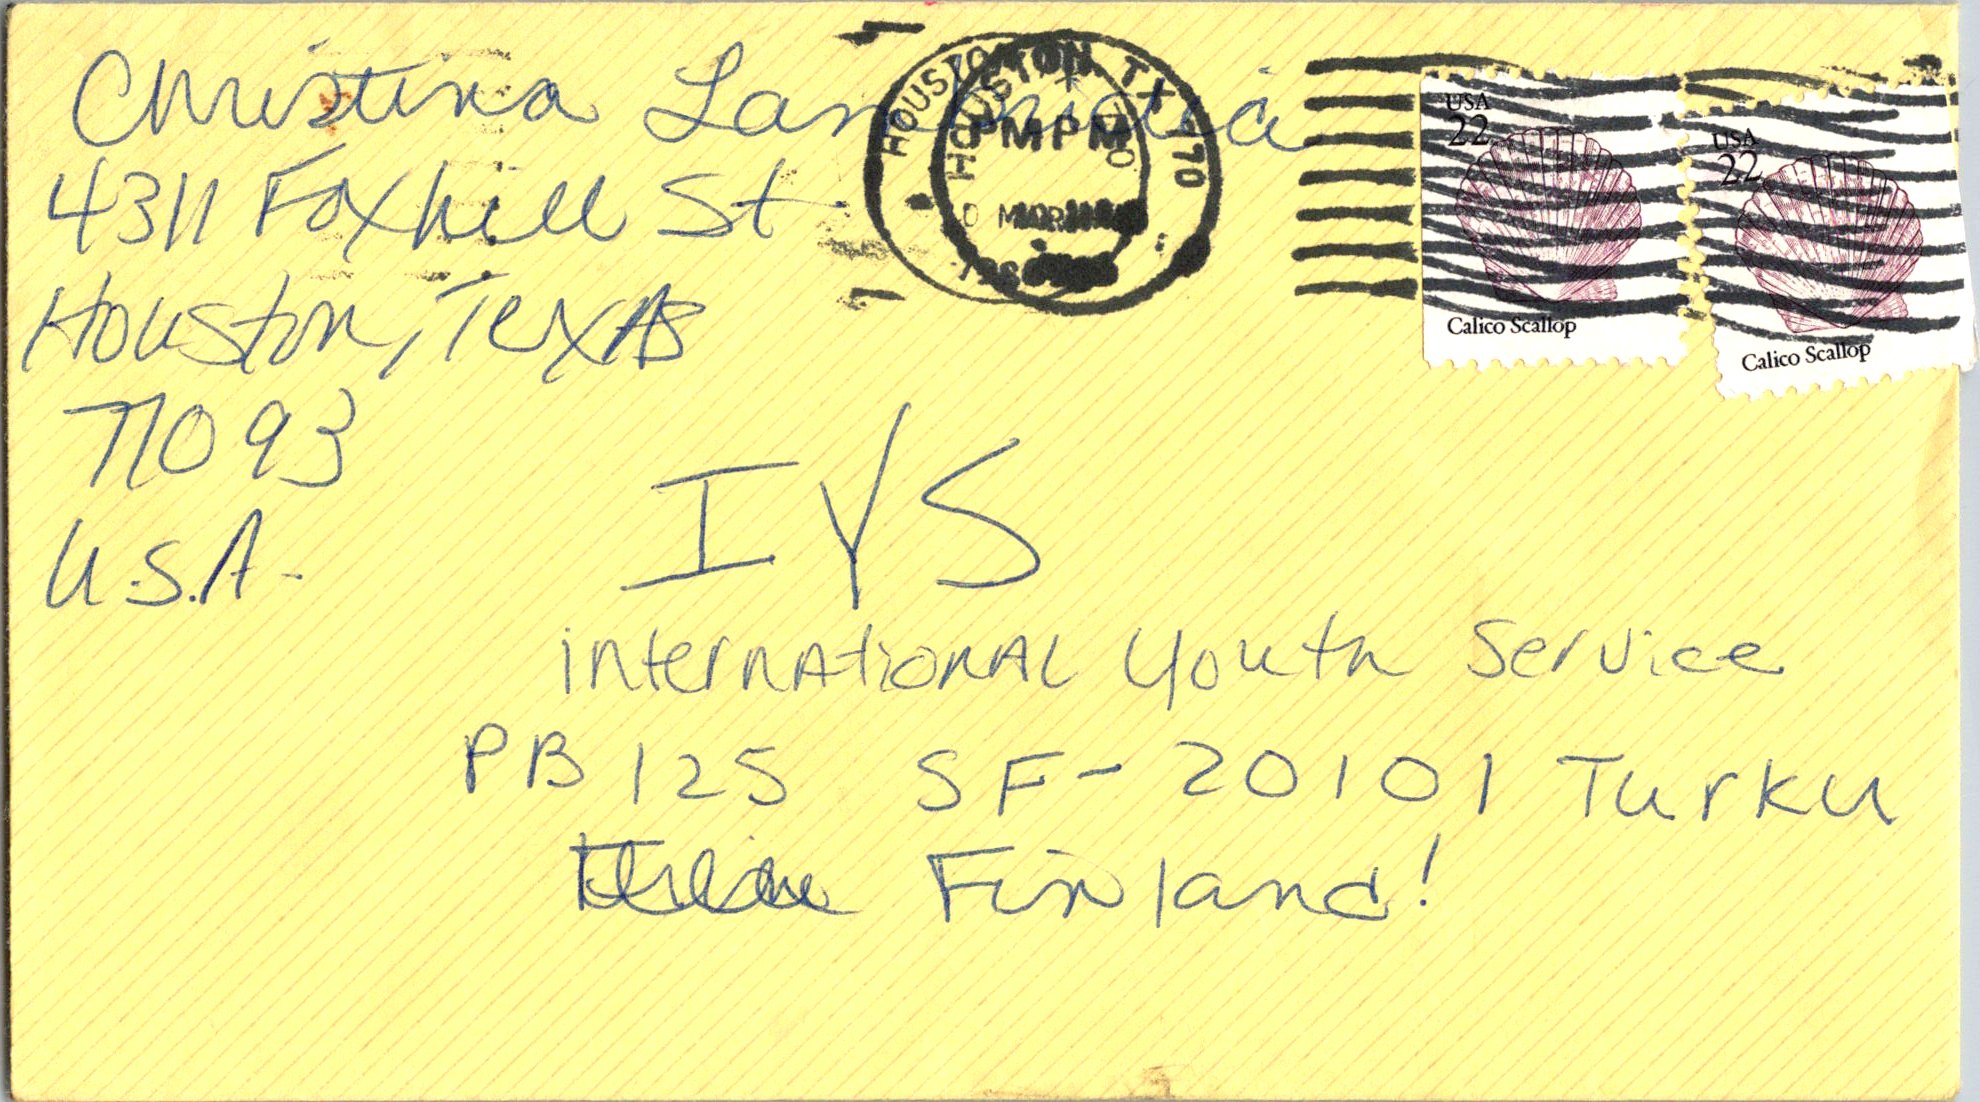 Christina
4311 Foxhill St.
Houston, Texas
77093
U.S.A.
HOUSTON, TX 770
PM PM
MAR
USA
22
Calico Scallop
USA
22
Calico Scallop
IYS
International Youth Service
PB 125 SF-20101 Turku
Finland!